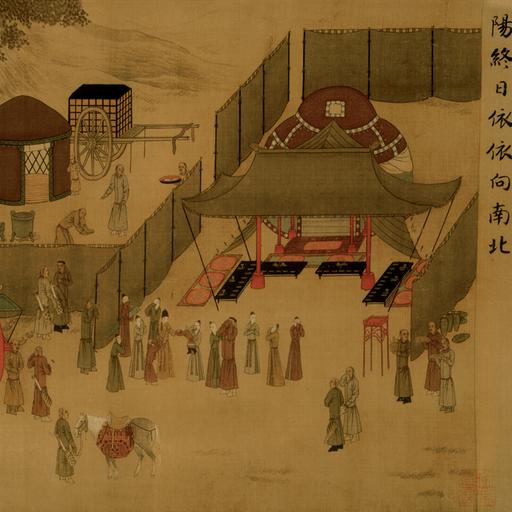 陽終日依依向南北